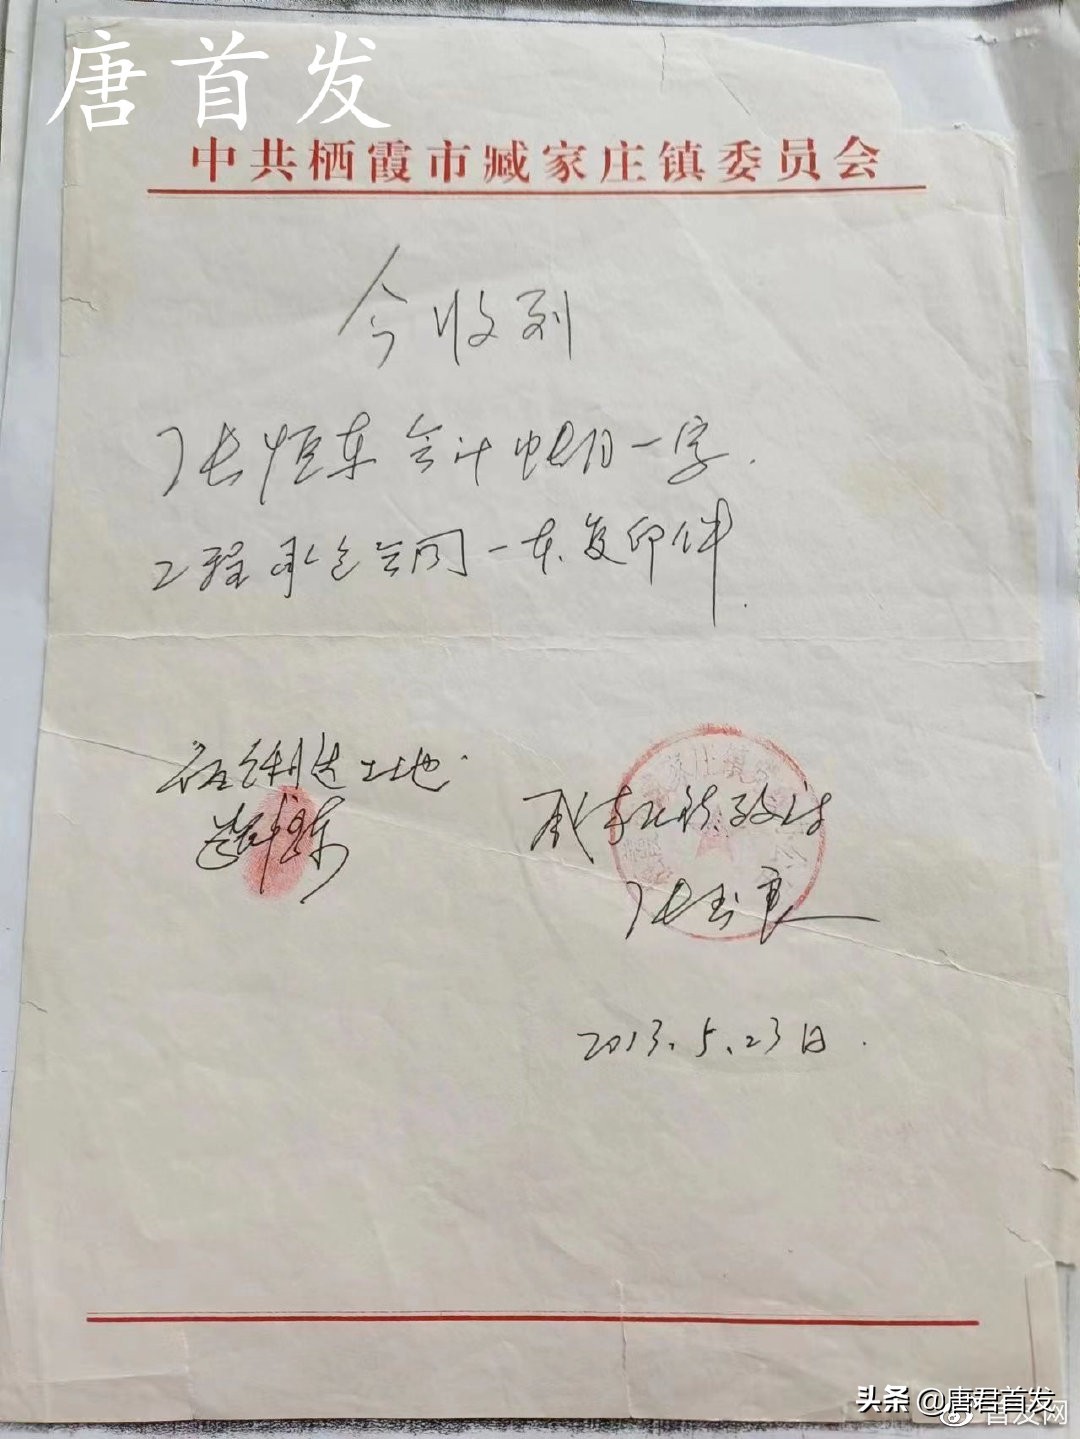 唐首发
中共栖霞市臧家庄镇委员会
今收到
张恒东会计账目一字.
工程承包合同一本复印件.
土地
臧家庄镇政府
张玉良
2013.5.23日.
头条 @唐君首发
首发网